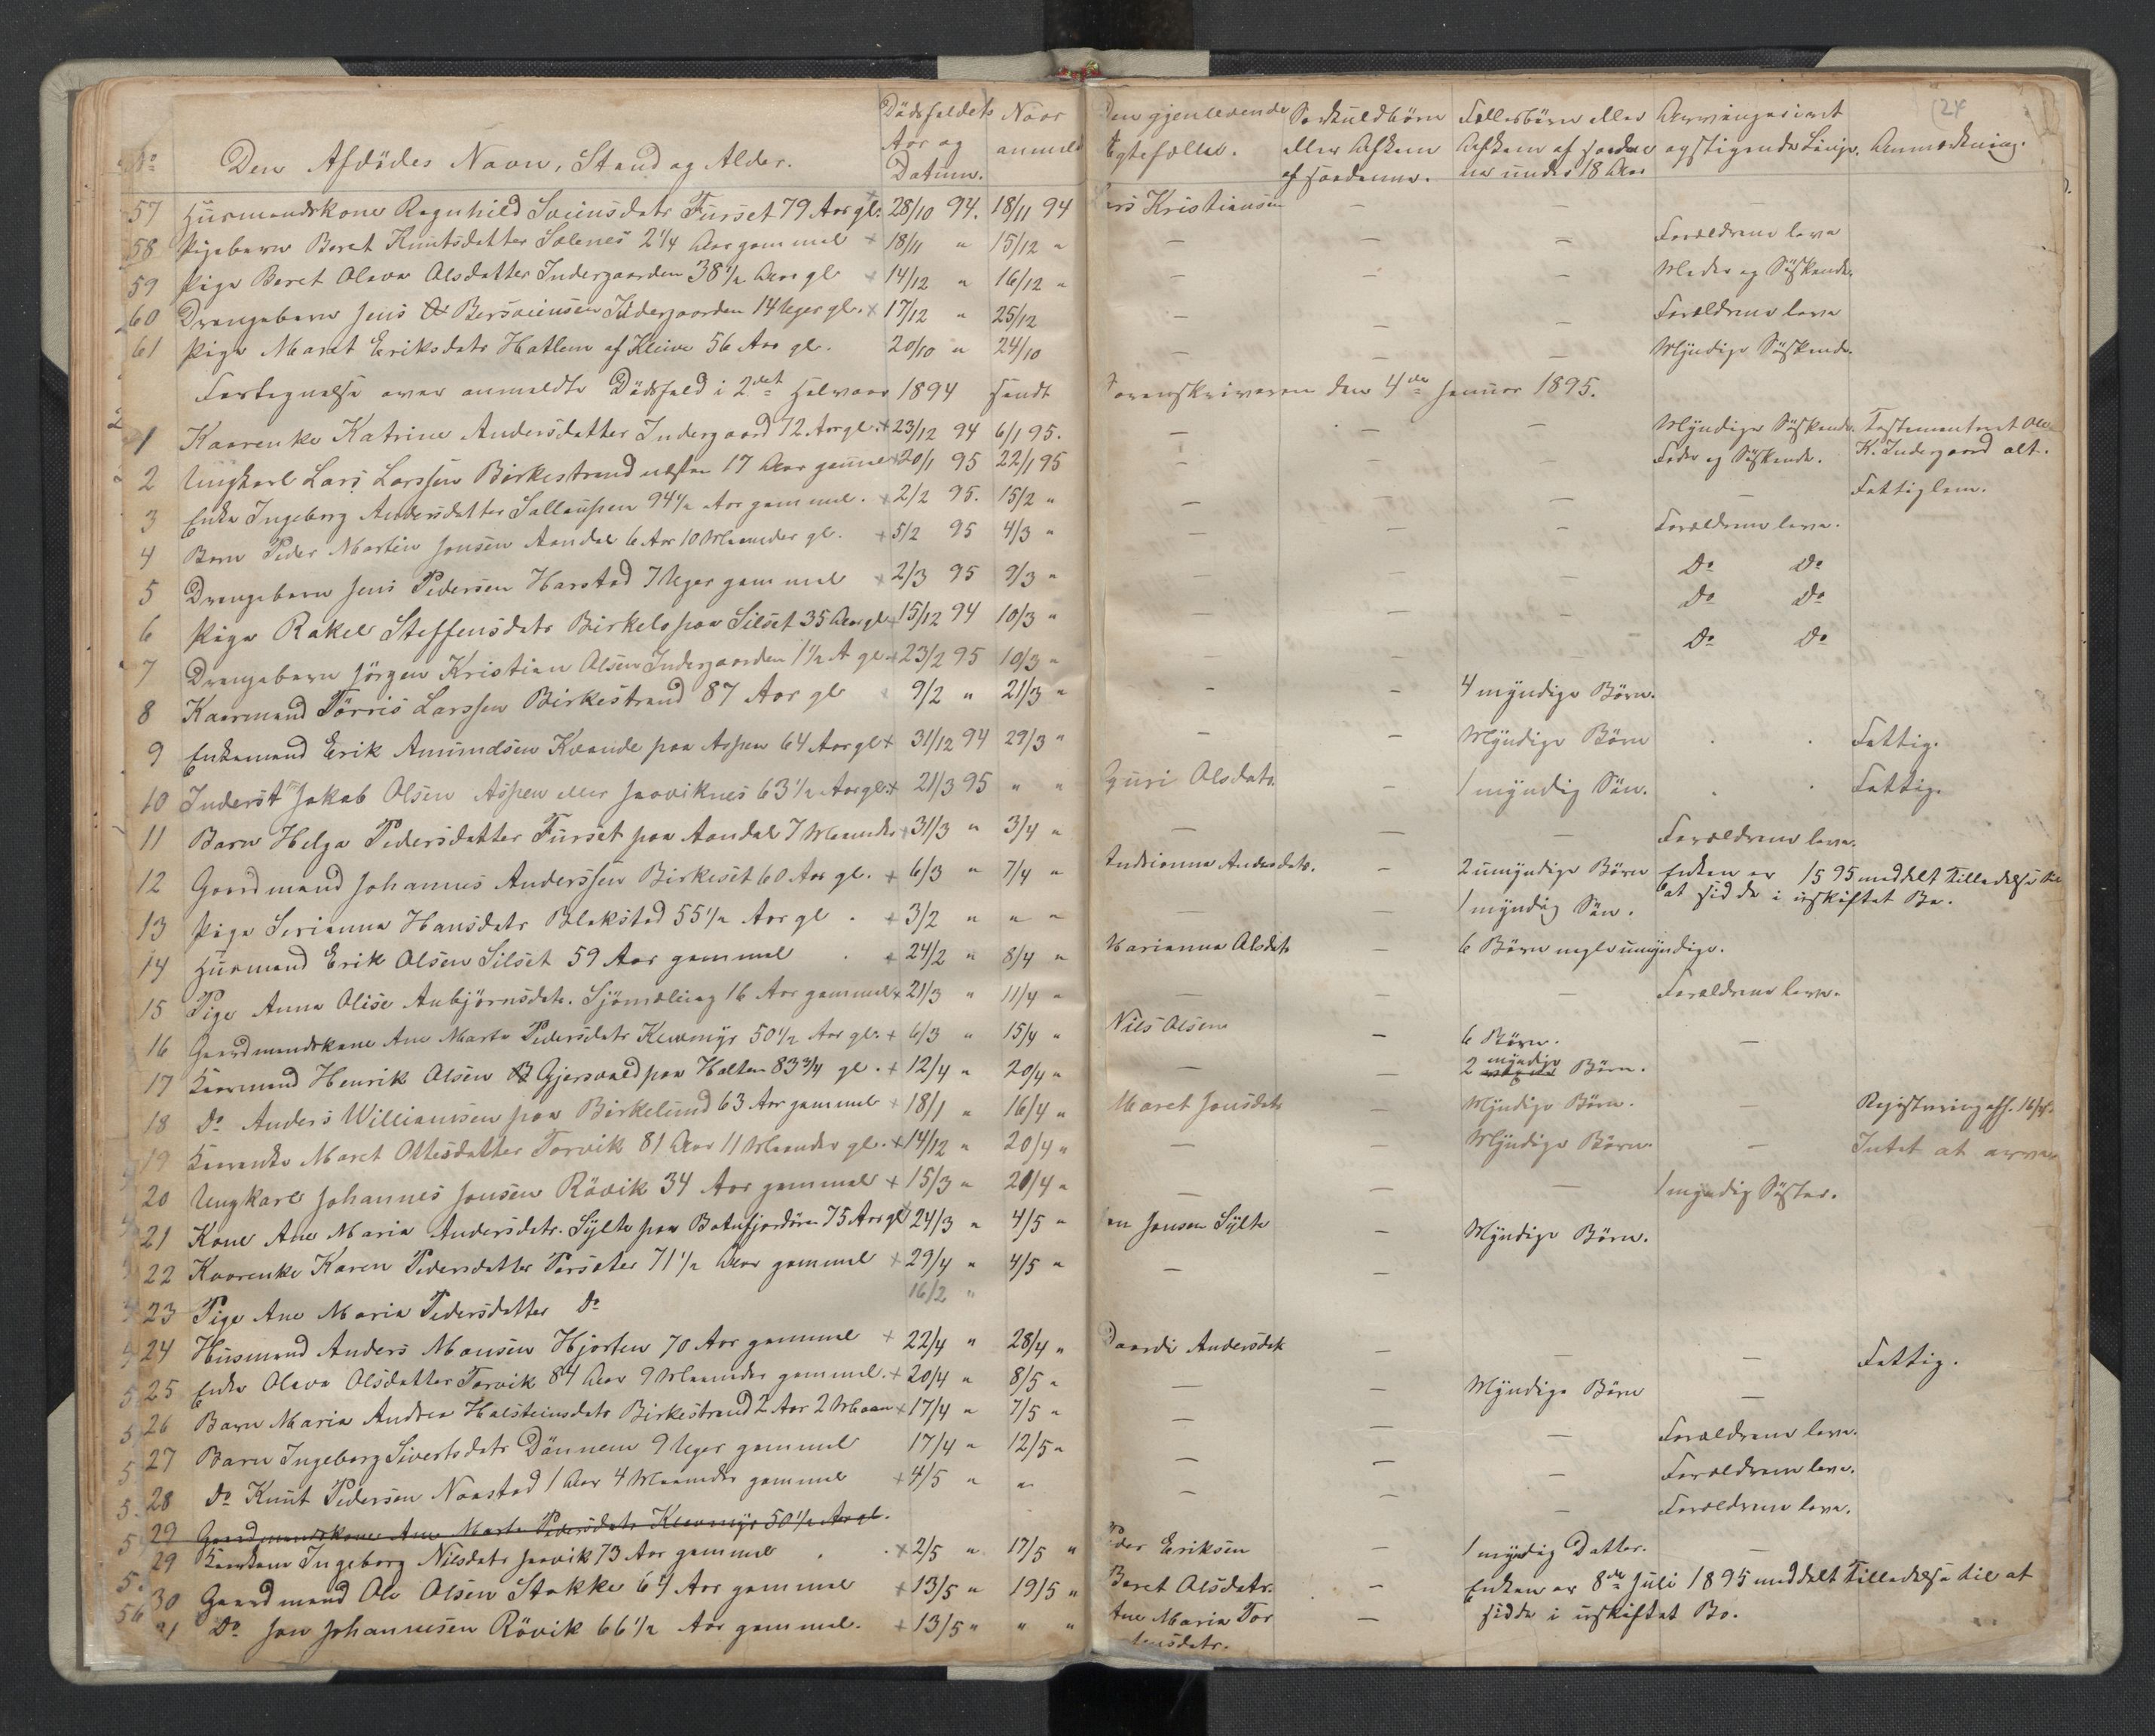 24
No Den Afdödes Navn, Stand og Alder. Dödsfaldets Aar og Datum. Naar anmeldt Den gjenlevende Ægtefælle. Særkuldbörn eller Afkom af saadanne. Fællesbörn eller Afkom af saadanne under 18 Aar Arvinger i ret opstigende Linje. Anmærkning.
57 Husmandskone Ragnhild Sveinsdatr Furset 79 Aar gl. 28/10 94. 18/11 94 Lars Kristiansen — — —
58 Pigebarn Beret Knutsdatter Solenes 2 1/4 Aar gammel + 18/11 " 15/12 " — — — Forældrene leve
59 Pige Beret Olava Olsdatter Indergaarden 38 1/2 Aar gl + 14/12 " 16/12 " — — — Moder og Söskende.
60 Drengebarn Jens Bersveinsen Indergaarden 14 Uger gl. + 17/12 " 25/12 — — — Forældrene leve
61 Pige Maret Eriksdatr Hatlem af Kleive 56 Aar gl. 20/10 " 24/10 — — — Myndige Söskende.
Fortegnelse over anmeldte Dödsfald i 2det Halvaar 1894 sendt Sorenskriveren den 4de Januar 1895.
1 Kaarenke Katrine Andersdatter Indergaard 72 Aar gl. + 23/12 94 6/1 95. — — — Myndige Söskende. Testamenteret Ole
K. Indergaard alt.
2 Ungkarl Lars Larssen Birkestrand næsten 17 Aar gammel + 20/1 95 22/1 95 — — — Fader og Söskende.
3 Enke Ingeborg Andersdatter Sallaupen 94 1/2 Aar gammel. + 2/2 95. 15/2 " — — — — Fattiglem.
4 Barn Peder Martin Jonsen Aandal 6 Aar 10 Maaneder gl. + 5/2 95 4/3 " — — — Forældrene leve.
5 Drengebarn Jens Pedersen Harstad 7 Uger gammel + 2/3 95 9/3 " — — — Do Do
6 Pige Rakel Steffensdatr Birkelo paa Silset 35 Aar gl + 15/12 94 10/3 " — — — Do Do
7 Drengebarn Jörgen Kristian Olsen Indergaarden 1 1/2 A gl. + 23/2 95 10/3 " — — — Do Do
8 Kaarmand Törris Larssen Birkestrand 87 Aar gl + 9/2 " 21/3 " — — 4 myndige Börn.
9 Enkemand Erik Amundsen Kvande paa Aspen 64 Aar gl + 31/12 94 29/3 " — — Myndige Börn Fattig.
10 Inderst Jakob Olsen Aspen eller Jaaviknes 63 1/2 Aar gl. + 21/3 95 " " Guri Olsdatr. — 1 myndig Sön. Fattig.
11 Barn Helga Pedersdatter Furset paa Aandal 7 Maaneder + 31/3 " 3/4 " — — — Forældrene leve.
12 Gaardmand Johannes Anderssen Birkeset 60 Aar gl. + 6/3 " 7/4 " Andrianna Andersdatr. — 2 umyndige Börn
1 myndig Sön. Enken er 1595 meddelt Tilladelse til
at sidde i uskiftet Bo.
13 Pige Serianna Hansdatr Blakstad 55 1/2 Aar gl. + 3/2 " " " —
14 Husmand Erik Olsen Silset 59 Aar gammel. + 24/2 " 8/4 " Marianna Olsdatr — 6 Börn nogle umyndige.
15 Pige Anna Olise Anbjörnsdatr. Sjömæling 16 Aar gammel + 21/3 " 11/4 " — — — Forældrene leve.
16 Gaardmandskone Ane Marta Pedersdatr Klevmyr 50 1/2 Aar gl. + 6/3 " 15/4 " Nils Olsen — 6 Börn. —
17 Kaarmand Henrik Olsen Gjersvold paa Halten 83 3/4 gl. + 12/4 " 20/4 " — — 2 myndige Börn.
18 Do Anders Williamsen paa Birkelund 63 Aar gammel + 18/1 " 16/4 " Maret Jonsdatr — Myndige Börn. — Registrering aff. 16/4.
19 Kaarenke Maret Ottesdatter Torvik 81 Aar 11 Maaneder gl. + 14/12 " 20/4 " — — Myndige Börn. — Intet at arve
20 Ungkarl Johannes Jonsen Rövik 34 Aar gammel + 15/3 " 20/4 " — — — 1 myndig Söster.
21 Kone Ane Maria Andersdatr. Sylte paa Batnfjordören 75 Aar gl + 24/3 " 4/5 " Jon Jonsen Sylte — Myndige Börn.
22 Kaarenke Karen Pedersdatter Torsæter 71 1/2 Aar gammel + 29/4 " 4/5 " — —
23 Pige Ane Maria Pedersdatter Do 16/2 "
24 Husmand Anders Monsen Hjorten 70 Aar gammel + 22/4 " 28/4 " Daardi Andersdtr — — — Fattig.
25 Enke Olava Olsdatter Torvik 84 Aar 9 Maaneder gammel. + 20/4 " 8/5 " — — Myndige Börn —
26 Barn Maria Andrea Halsteinsdatr Birkestrand 2 Aar 2 Maan + 17/4 " 7/5 " — — — Forældrene leve.
27 Barn Ingeborg Sivertsdatr Dönnem 9 Uger gammel 17/4 " 12/5 " — — — Forældrene leve.
28 Do Knut Pedersen Naastad 1 Aar 4 Maaneder gammel + 4/5 " " — — — Forældrene leve.
29 Gaardmandskone Ane Marta Pedersdatr Klevmyr 50 1/2 Aar gl.
29 Kaarkone Ingeborg Nilsdatr Jaavik 73 Aar gammel + 2/5 " 17/5 " Peder Eriksen — 1 myndig Datter. —
30 Gaardmand Ole Olsen Stokke 64 Aar gammel + 13/5 " 19/5 " Beret Olsdatr. — Enken er 8de Juli 1895 meddelt Tilladelse til at
sidde i uskiftet Bo.
31 Do Jon Johannesen Rövik 66 1/2 Aar gammel. + 13/5 " " " Ane Maria Tor
stensdatr. —